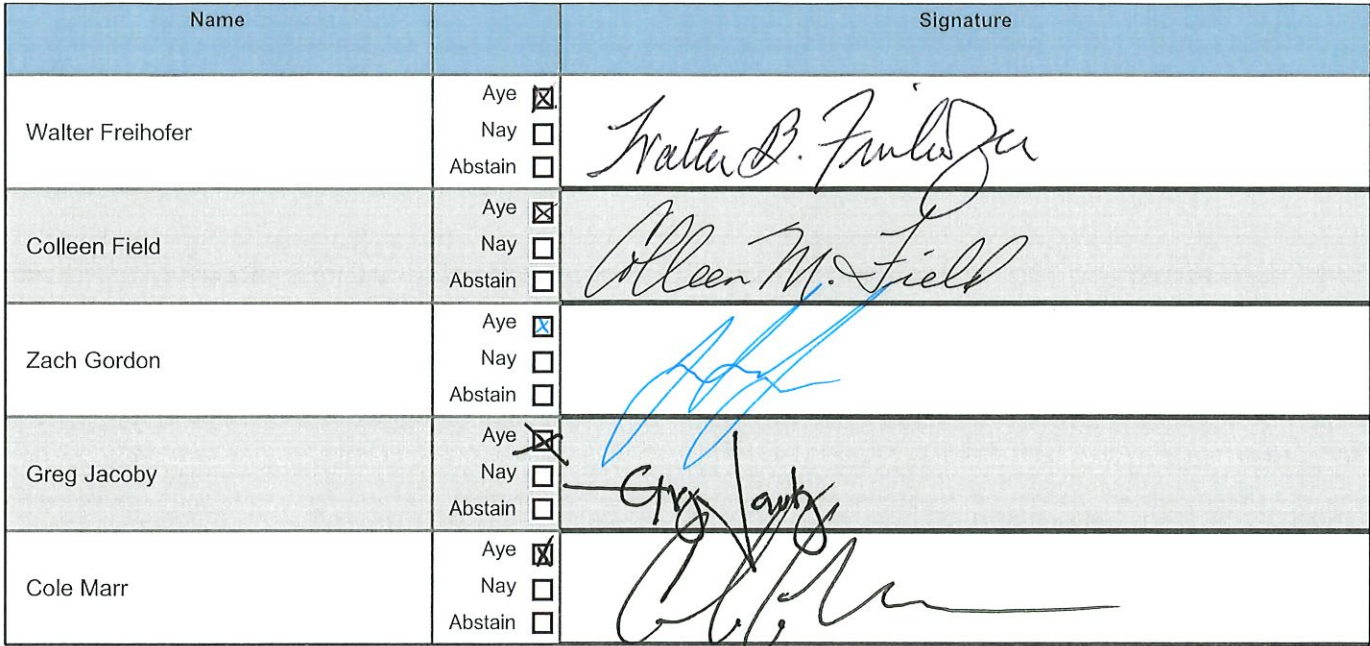 Name Signature
Walter Freihofer
Aye ☒
Nay ☐
Abstain ☐
Walter B. Freihofer
Colleen Field
Aye ☒
Nay ☐
Abstain ☐
Colleen M. Field
Zach Gordon
Aye ☒
Nay ☐
Abstain ☐
Greg Jacoby
Aye ☒
Nay ☐
Abstain ☐
Greg Jacoby
Cole Marr
Aye ☒
Nay ☐
Abstain ☐